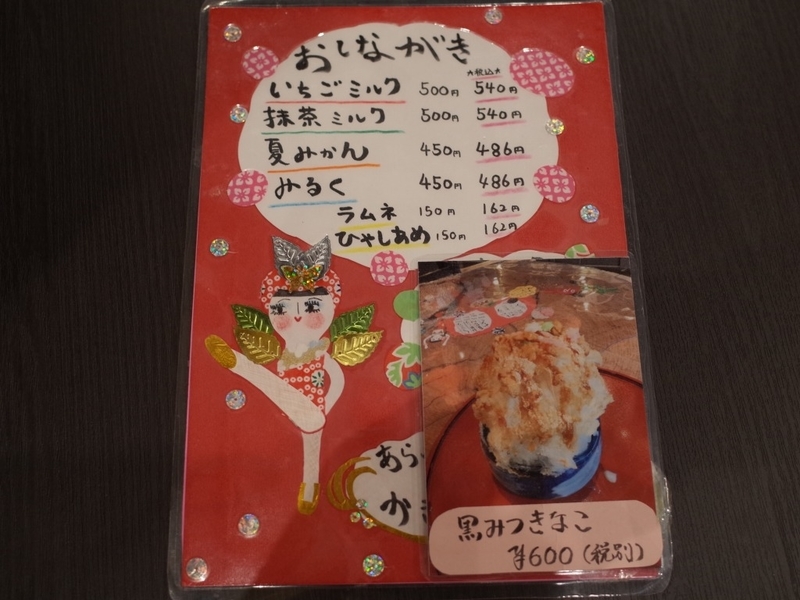 おしながき
*税込*
いちごミルク 500円 540円
抹茶ミルク 500円 540円
夏みかん 450円 486円
みるく 450円 486円
ラムネ 150円 162円
ひやしあめ 150円 162円
あら
か
黒みつきなこ
¥600(税別)